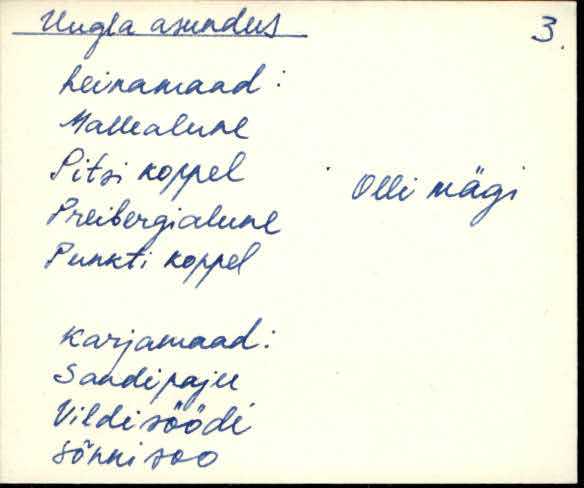 Uugla asundus 3.
heinamaad:
Mallealune
Pitsi koppel
Olli mägi
Preibergialune
Punkti koppel
karjamaad:
Sandipaju
Vildisöödi
Sõnnisoo